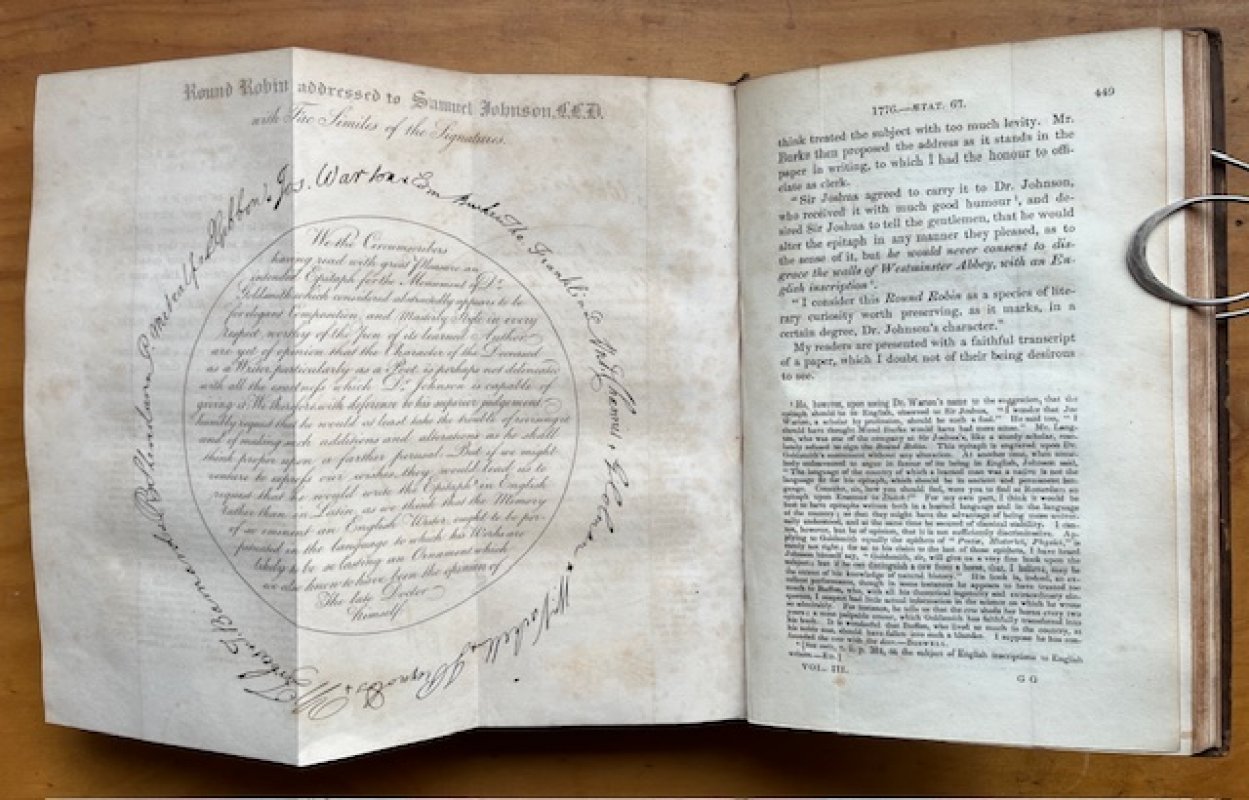 Round Robin addressed to Samuel Johnson, L.L.D.
with Fac Similes of the Signatures.
Jos. Warton
Edm Burke
Tho. Franklin
Ant. Chamier
G Colman
W Vachell
J Reynolds
W Forbes
T Barnard
R B Sheridan
P Metcalf
E Gibbon
We the Circumscribers
having read with great pleasure an
intended Epitaph for the Monument of Dr.
Goldsmith which considered abstractedly appears to be
for elegant Composition and Masterly Style in every
respect worthy of the Pen of its learned Author,
are yet of opinion that the Character of the Deceased
as a Writer, particularly as a Poet, is perhaps not delineated
with all the exactness which Dr. Johnson is capable of
giving it. We therefore with deference to his superior judgement
humbly request that he would at least take the trouble of revising it
and of making such additions and alterations as he shall
think proper upon a farther perusal. But if we might
venture to express our wishes, they would lead us to
request that he would write the Epitaph in English
rather than in Latin, as we think that the Memory
of so eminent an English Writer ought to be per-
petuated in the language to which his Works are
likely to be so lasting an Ornament which
we also know to have been the opinion of
The late Doctor
himself.
1776.—ÆTAT. 67. 449
think treated the subject with too much levity. Mr.
Burke then proposed the address as it stands in the
paper in writing, to which I had the honour to offi-
ciate as clerk.
"Sir Joshua agreed to carry it to Dr. Johnson,
who received it with much good humour ¹, and de-
sired Sir Joshua to tell the gentlemen, that he would
alter the epitaph in any manner they pleased, as to
the sense of it, but he would never consent to dis-
grace the walls of Westminster Abbey, with an En-
glish inscription ².
"I consider this Round Robin as a species of lite-
rary curiosity worth preserving, as it marks, in a
certain degree, Dr. Johnson's character."
My readers are presented with a faithful transcript
of a paper, which I doubt not of their being desirous
to see.
¹ He, however, upon seeing Dr. Warton's name to the suggestion, that the
epitaph should be in English, observed to Sir Joshua, "I wonder that Joe
Warton, a scholar by profession, should be such a fool." He said too, "I
should have thought Mund Burke would have had more sense." Mr. Lang-
ton, who was one of the company at Sir Joshua's, like a sturdy scholar, reso-
lutely refused to sign the Round Robin. The epitaph is engraved upon Dr.
Goldsmith's monument without any alteration. At another time, when some-
body endeavoured to argue in favour of its being in English, Johnson said,
"The language of the country of which a learned man was a native is not the
language fit for his epitaph, which should be in ancient and permanent lan-
guage. Consider, sir, how you should feel, were you to find at Rotterdam an
epitaph upon Erasmus in Dutch!" For my own part, I think it would be
best to have epitaphs written both in a learned language and in the language
of the country; so that they might have the advantage of being more univer-
sally understood, and at the same time be secured of classical stability. I can-
not, however, but be of opinion, that it is not sufficiently discriminative. Ap-
plying to Goldsmith equally the epithets of "Poetæ, Historici, Physici," is
surely not right; for as to his claim to the last of those epithets, I have heard
Johnson himself say, "Goldsmith, sir, will give us a very fine book upon the
subject; but if he can distinguish a cow from a horse, that, I believe, may be
the extent of his knowledge of natural history." His book is, indeed, an ex-
cellent performance, though in some instances he appears to have trusted too
much to Buffon, who, with all his theoretical ingenuity and extraordinary elo-
quence, I suspect had little actual information in the science on which he wrote
so admirably. For instance, he tells us that the cow sheds her horns every two
years; a most palpable errour, which Goldsmith has faithfully transferred into
his book. It is wonderful that Buffon, who lived so much in the country, at
his noble seat, should have fallen into such a blunder. I suppose he has con-
founded the cow with the deer.—BOSWELL.
² on the subject of English inscriptions to English
writers.—ED.]
VOL. III. G G